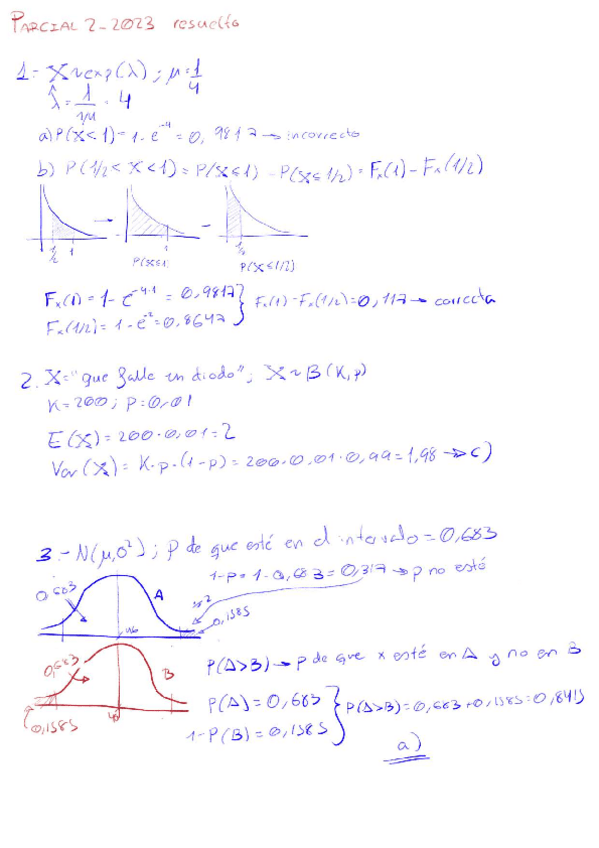 PARCIAL 2-2023 resuelto
1- X~exp(λ) ; μ=1/4
λ̂ = 1/μ = 4
a) P(X<1)=1-e^-4 = 0,9817 → incorrecto
b) P(1/2<X<1)=P(X≤1) - P(X≤1/2)=Fx(1)-Fx(1/2)
1/2 1
1
1/2
P(X≤1)
P(X≤1/2)
Fx(1)=1-e^-4·1=0,9817
Fx(1/2)=1-e^-2=0,8647
Fx(1)-Fx(1/2)=0,117 → correcta
2. X="que falle un diodo"; X~B(K,p)
K=200; p=0,01
E(X)=200·0,01=2
Var(X)=K·p·(1-p)=200·0,01·0,99=1,98 → c)
3.- N(μ,σ²) ; P de que esté en el intervalo=0,683
1-p=1-0,683=0,317 → p no esté
0,683
A
0,1585
0,683
B
0,1585
P(A>B) → p de que x esté en A y no en B
P(A)=0,683
1-P(B)=0,1585
P(A>B)=0,683+0,1585=0,8415
a)